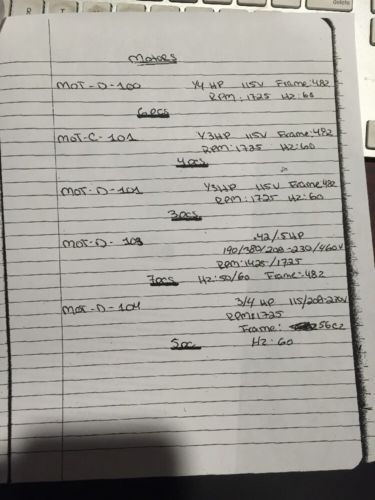 Motors
MOT-D-100 1/4 HP 115V Frame:48Z
RPM: 1725 HZ:60
6pcs
MOT-C-101 1/3HP 115V Frame:48Z
RPM: 1725 HZ:60
4pcs
MOT-D-101 1/3HP 115V Frame:48Z
RPM: 1725 HZ:60
3pcs
MOT-D-103 .42/.5HP
190/380/208-230/460V
RPM:1425/1725
7pcs HZ:50/60 Frame:48Z
MOT-D-104 3/4 HP 115/208-230V
RPM:1725
Frame: 56CZ
5pc HZ:60
delete